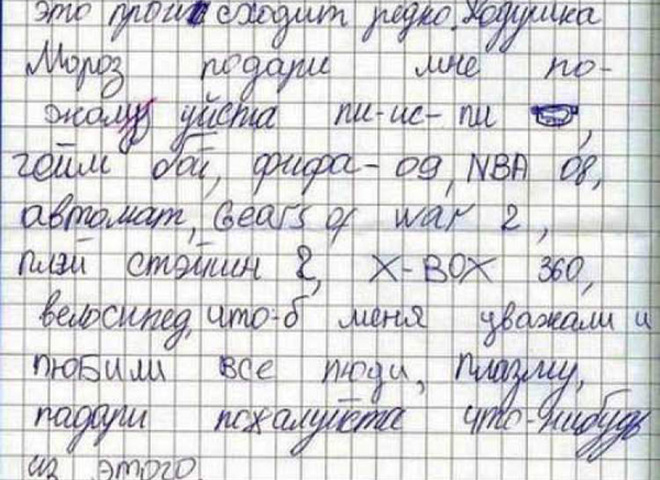 это происходит редко. Дедушка
Мороз подари мне по-
жалу уйста пи-ис-пи ,
гейм бой, фифа-09, NBA 08,
автомат, Gears of war 2,
плэй стэйшин 2, X-BOX 360,
велосипед, что-б меня уважали и
любили все люди, плазму,
падари пожалуйста что-нибудь
из этого.